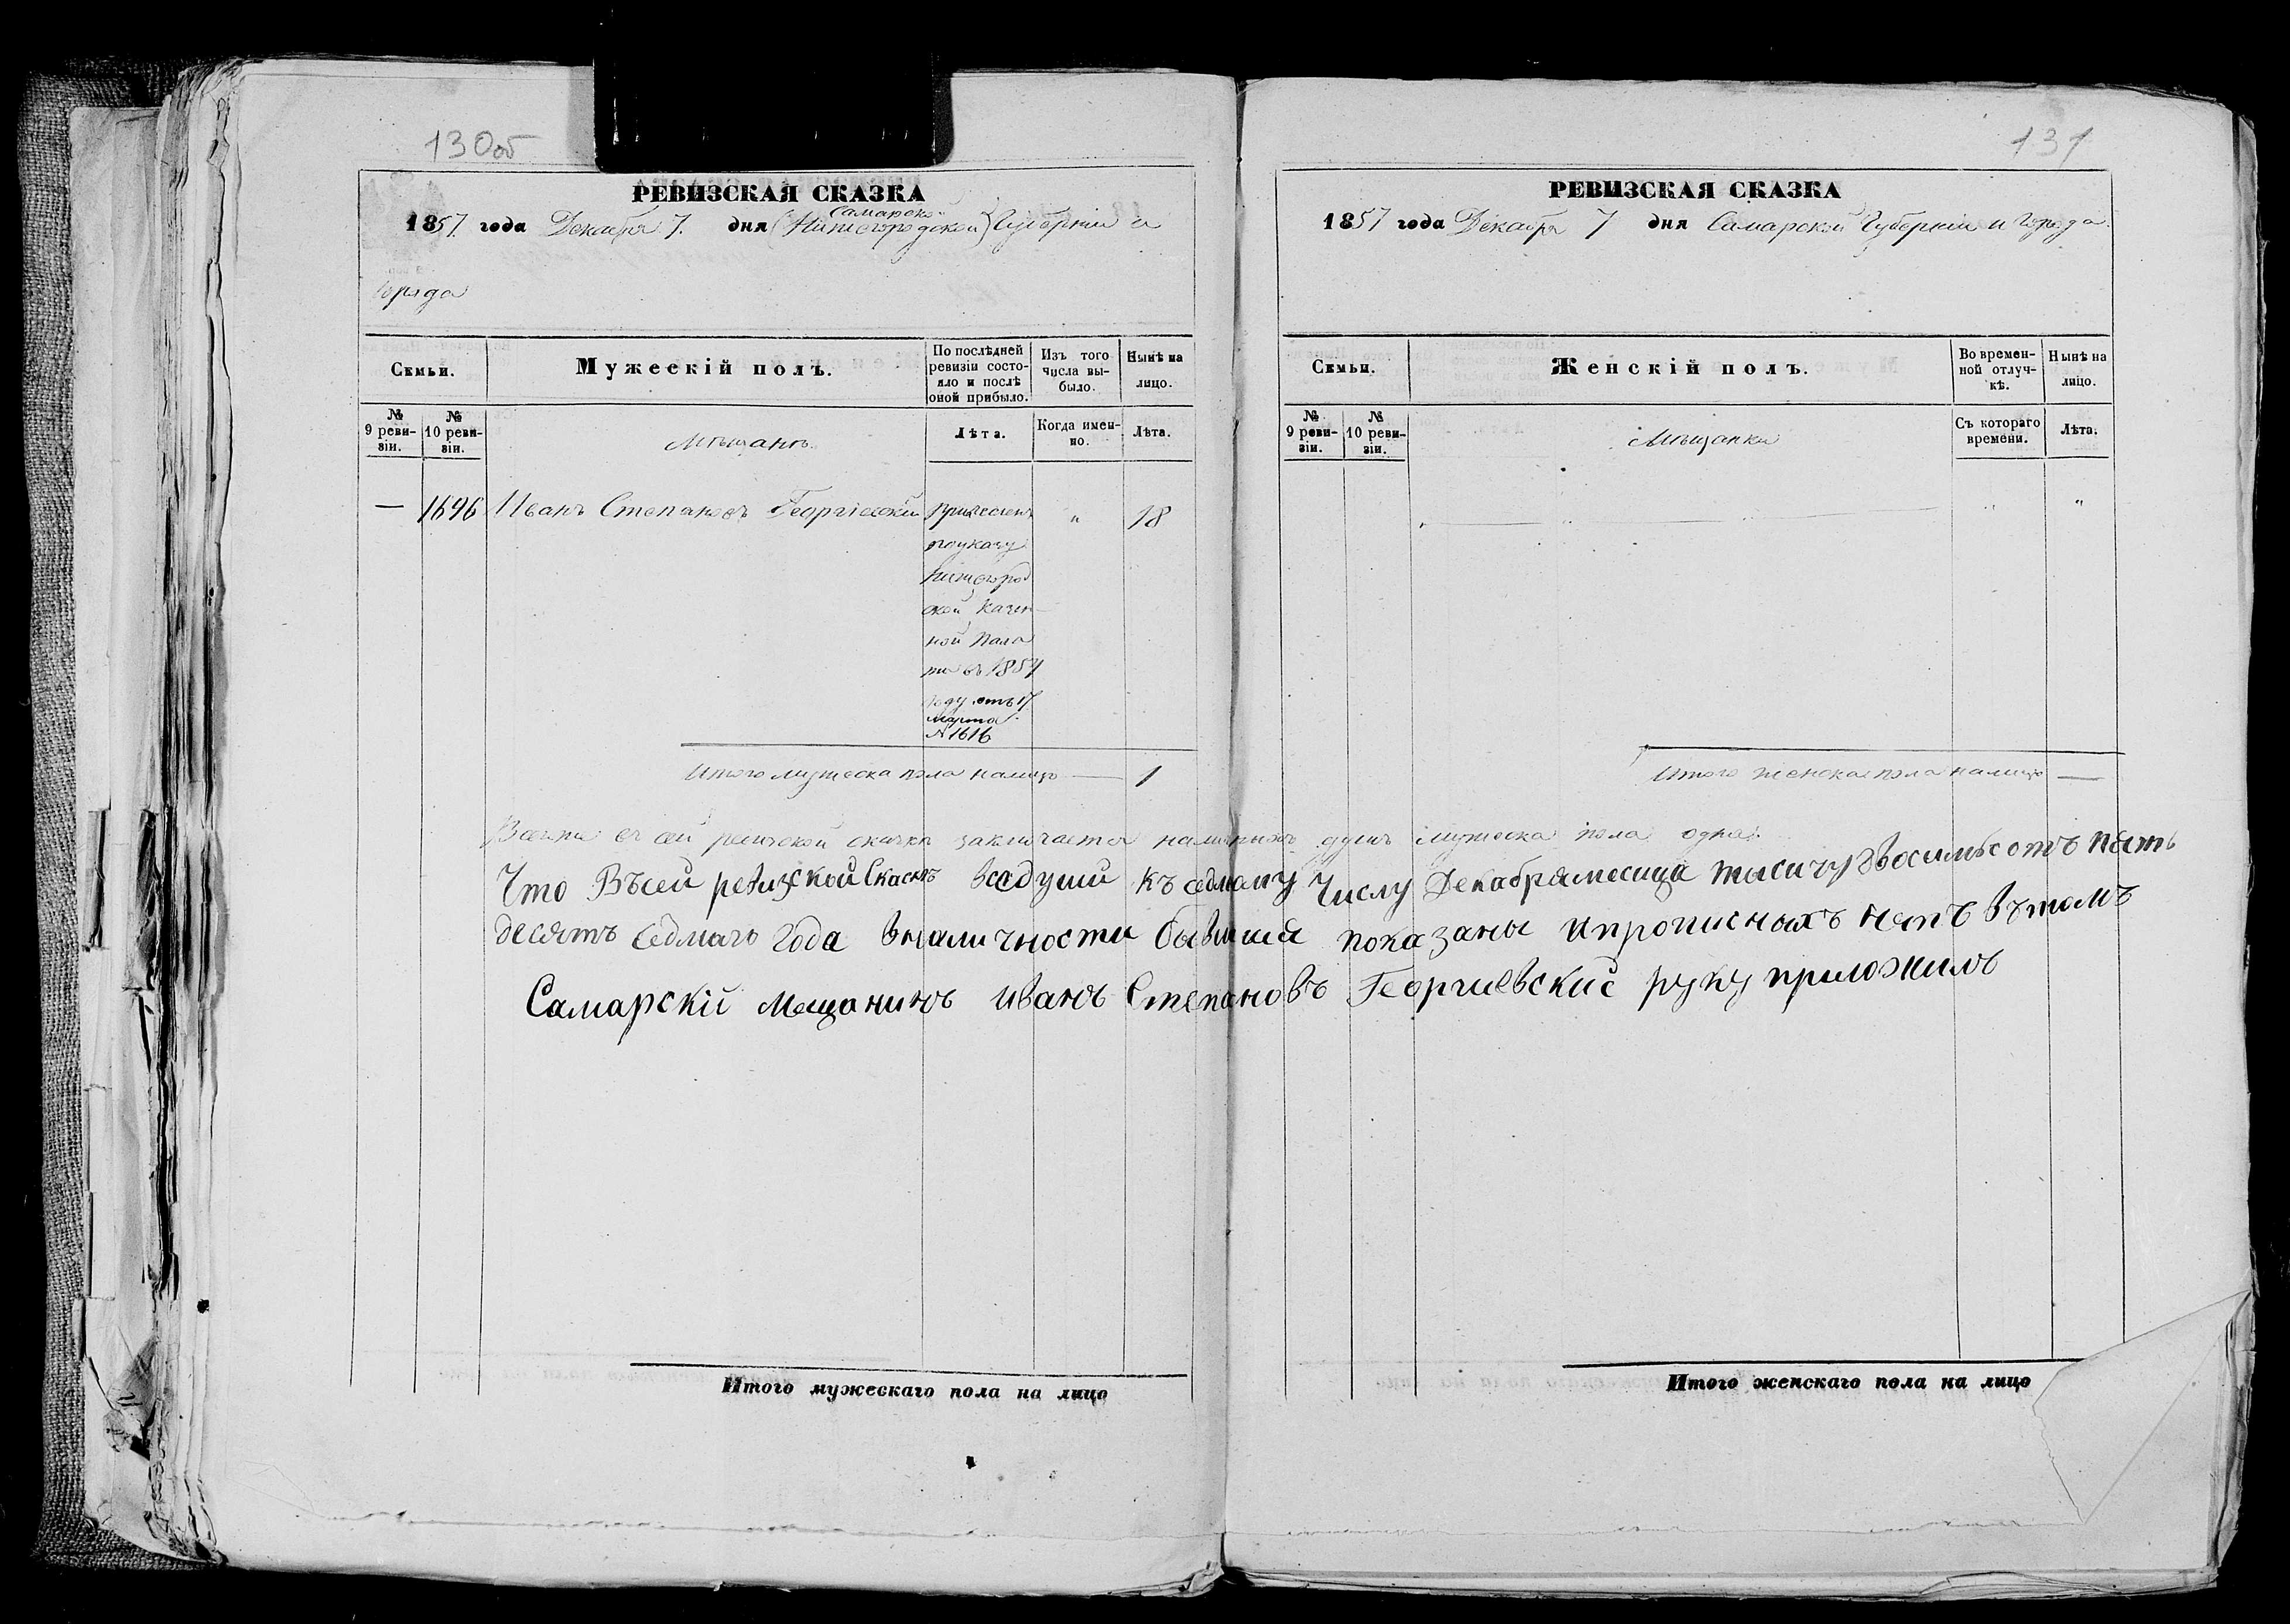 130об
РЕВИЗСКАЯ СКАЗКА
Самарской
1857 года Декабря 7. дня (Нижегородской) Губерніи и
города
Семьи.
Мужескій полъ.
По послѣдней ревизіи состояло и послѣ оной прибыло.
Изъ того числа выбыло.
Нынѣ на лицо.
№ 9 ревизіи.
№ 10 ревизіи.
Мѣщанъ.
Лѣта.
Когда именно.
Лѣта.
— 1696 Иванъ Степановъ Георгіевскій причисленъ " 18
по указу
Нижегород
ской Казен
ной Пала
ты въ 1857
году отъ 17
марта
№ 1616
Итого мужеска пола налицо — 1
131
РЕВИЗСКАЯ СКАЗКА
1857 года Декабря 7 дня Самарской Губерніи и города
Семьи.
Женскій полъ.
Во временной отлучкѣ.
Нынѣ на лицо.
№ 9 ревизіи.
№ 10 ревизіи.
Мѣщанки
Съ котораго времени.
Лѣта.
" "
Итого женска пола налицо —
Всего въ сей ревизской сказкѣ заключается наличныхъ душъ мужеска пола одна.
Что Въсей ревизской Скаскѣ все души къ седмому Числу Декабря месяца тысячу восимьсотъ пять
десятъ Седмаго Года вналичности бывшия показаны и прописныхъ нетъ вътомъ
Самарскій мещанинъ иванъ Степановъ Георгиевский руку приложилъ
Итого мужескаго пола на лицо
Итого женскаго пола на лицо